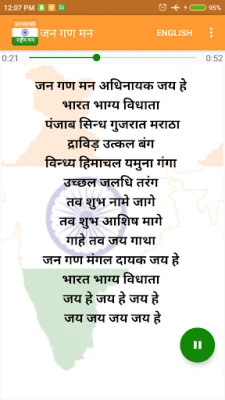 12:07 PM 95%
जन गण मन ENGLISH
0:21 0:52
जन गण मन अधिनायक जय हे
भारत भाग्य विधाता
पंजाब सिन्ध गुजरात मराठा
द्राविड़ उत्कल बंग
विन्ध्य हिमाचल यमुना गंगा
उच्छल जलधि तरंग
तव शुभ नामे जागे
तव शुभ आशिष मागे
गाहे तव जय गाथा
जन गण मंगल दायक जय हे
भारत भाग्य विधाता
जय हे जय हे जय हे
जय जय जय जय हे